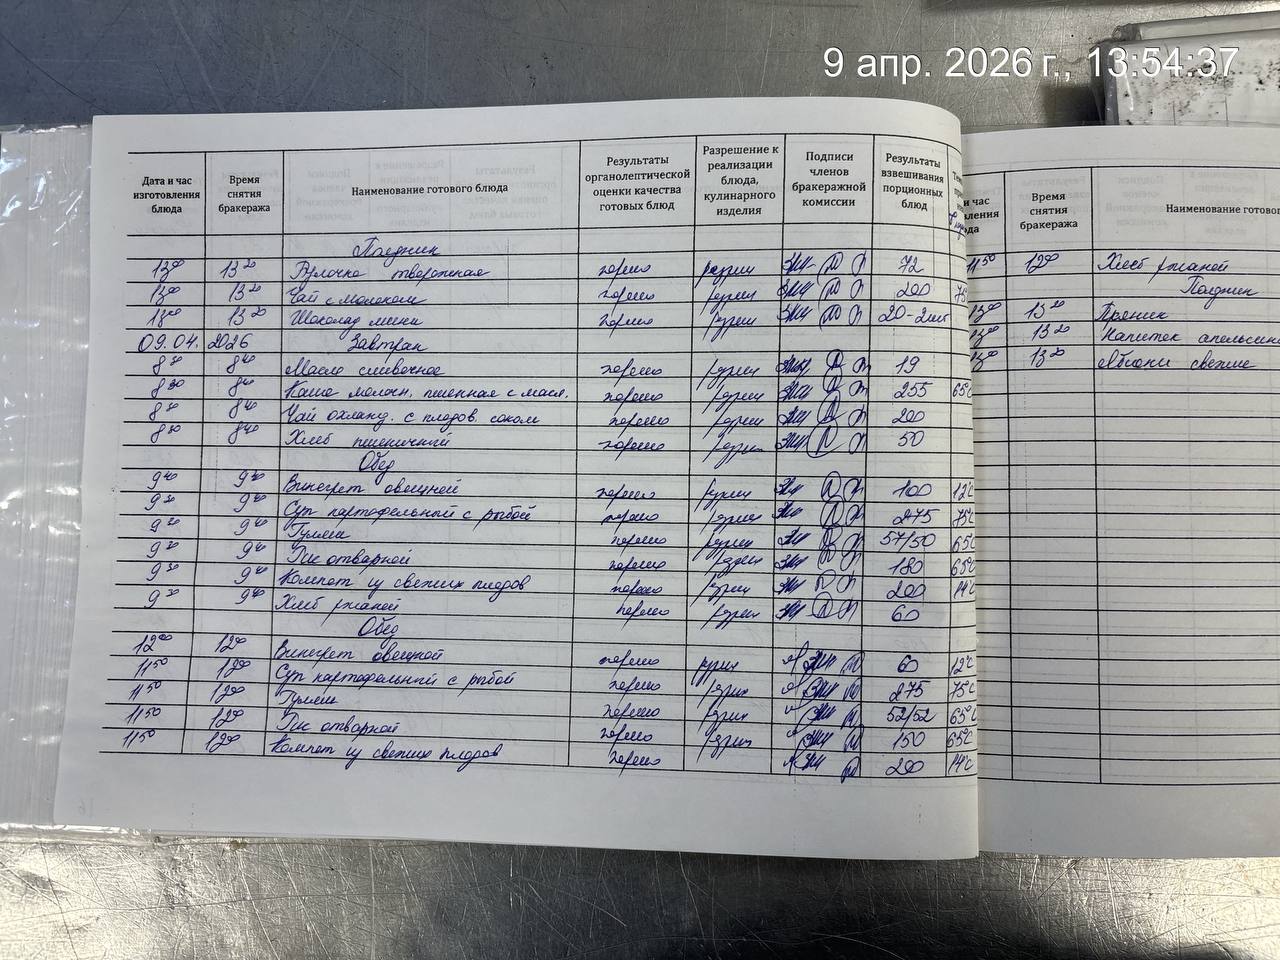 9 апр. 2026 г., 13:54:37
Дата и час изготовления блюда Время снятия бракеража Наименование готового блюда Результаты органолептической оценки качества готовых блюд Разрешение к реализации блюда, кулинарного изделия Подписи членов бракеражной комиссии Результаты взвешивания порционных блюд
Полдник
13 00 13 20 Булочка творожная хорошо разреш 72
13 00 13 20 Чай с молоком хорошо разреш 200 75°
13 00 13 20 Шоколад мини хорошо разреш 20-2шт
09.04.2026 Завтрак
8 30 8 40 Масло сливочное хорошо разреш 19
8 30 8 40 Каша молочн. пшенная с масл. хорошо разреш 255 65°C
8 30 8 40 Чай охлажд. с плодов. соком хорошо разреш 200
8 30 8 40 Хлеб пшеничный хорошо разреш 50
Обед
9 40 Винегрет овощной хорошо разреш 100 12°C
9 30 9 40 Суп картофельный с рыбой хорошо разреш 275 75°C
9 40 Гуляш хорошо разреш 57/50 65°C
9 30 9 40 Рис отварной хорошо разреш 180 65°C
9 30 9 40 Компот из свежих плодов хорошо разреш 200 14°C
9 30 9 40 Хлеб ржаной хорошо разреш 60
Обед
12 00 12 00 Винегрет овощной хорошо разреш 60 12°C
11 50 12 00 Суп картофельный с рыбой хорошо разреш 275 75°C
11 50 12 00 Гуляш хорошо разреш 52/52 65°C
11 50 12 00 Рис отварной хорошо разреш 150 65°C
11 50 12 00 Компот из свежих плодов хорошо 200 14°C
Время снятия бракеража Наименование готово
11 50 12 00 Хлеб ржаной
Полдник
13 00 13 20 Пряник
13 00 13 20 Напиток апельсин
13 00 13 20 Яблоки свежие